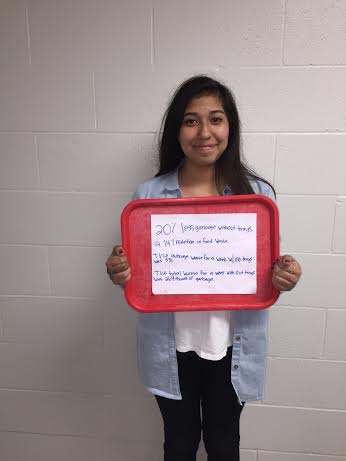 20% less garbage without trays.
A 14% reduction in food waste.
The average waste for a week w/ no trays
was
The total waste for a week without trays
was pounds of garbage.